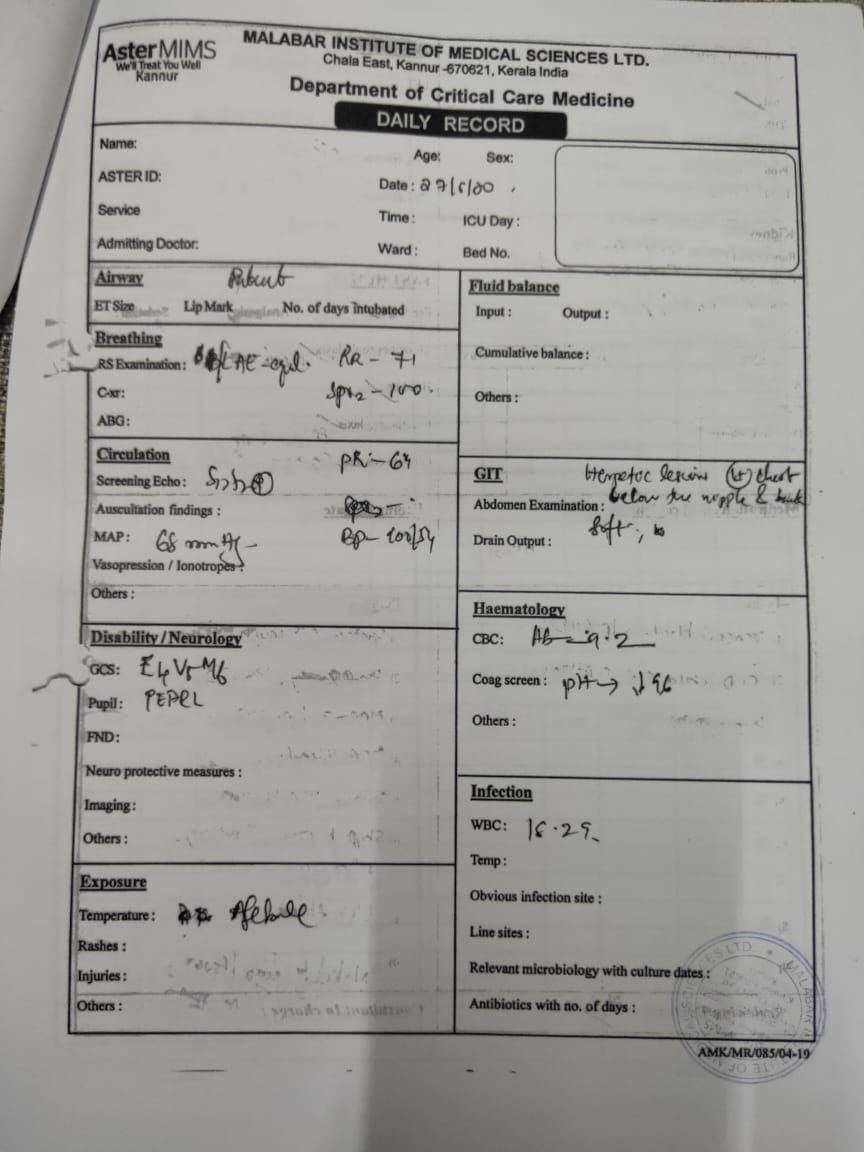 AsterMIMS
We'll Treat You Well
Kannur
MALABAR INSTITUTE OF MEDICAL SCIENCES LTD.
Chala East, Kannur -670621, Kerala India
Department of Critical Care Medicine
DAILY RECORD
Name:
Age: Sex:
ASTER ID:
Date :
Service
Time : ICU Day :
Admitting Doctor:
Ward : Bed No.
Airway
ET Size Lip Mark No. of days intubated
Breathing
RS Examination : AE - RR -
C-xr: SpO2 - 100.
ABG:
Circulation PR - 64
Screening Echo : S1S2 (+)
Auscultation findings :
MAP: 68 mmHg - BP - 100/54
Vasopression / Ionotropes :
Others :
Disability / Neurology
GCS: E4V5M6
Pupil :
FND:
Neuro protective measures :
Imaging :
Others :
Exposure
Temperature : Afebrile
Rashes :
Injuries :
Others :
Fluid balance
Input : Output :
Cumulative balance :
Others :
GIT Herpetic lesions chest
Abdomen Examination : below the nipple & back
Soft ;
Drain Output :
Haematology
CBC: 9.2
Coag screen :
Others :
Infection
WBC: 16.29
Temp :
Obvious infection site :
Line sites :
Relevant microbiology with culture dates :
Antibiotics with no. of days :
AMK/MR/085/04-19